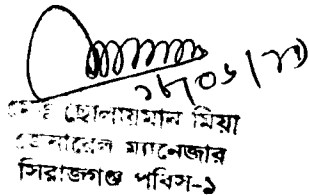 ১৮/০৬/২৩
মোঃ ছোলায়মান মিয়া
জেনারেল ম্যানেজার
সিরাজগঞ্জ পবিস-১